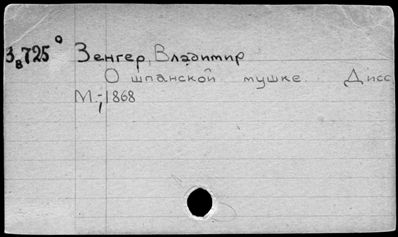 3₈725° Зенгер, Владимир
О шпанской мушке. Дисс
М., 1868